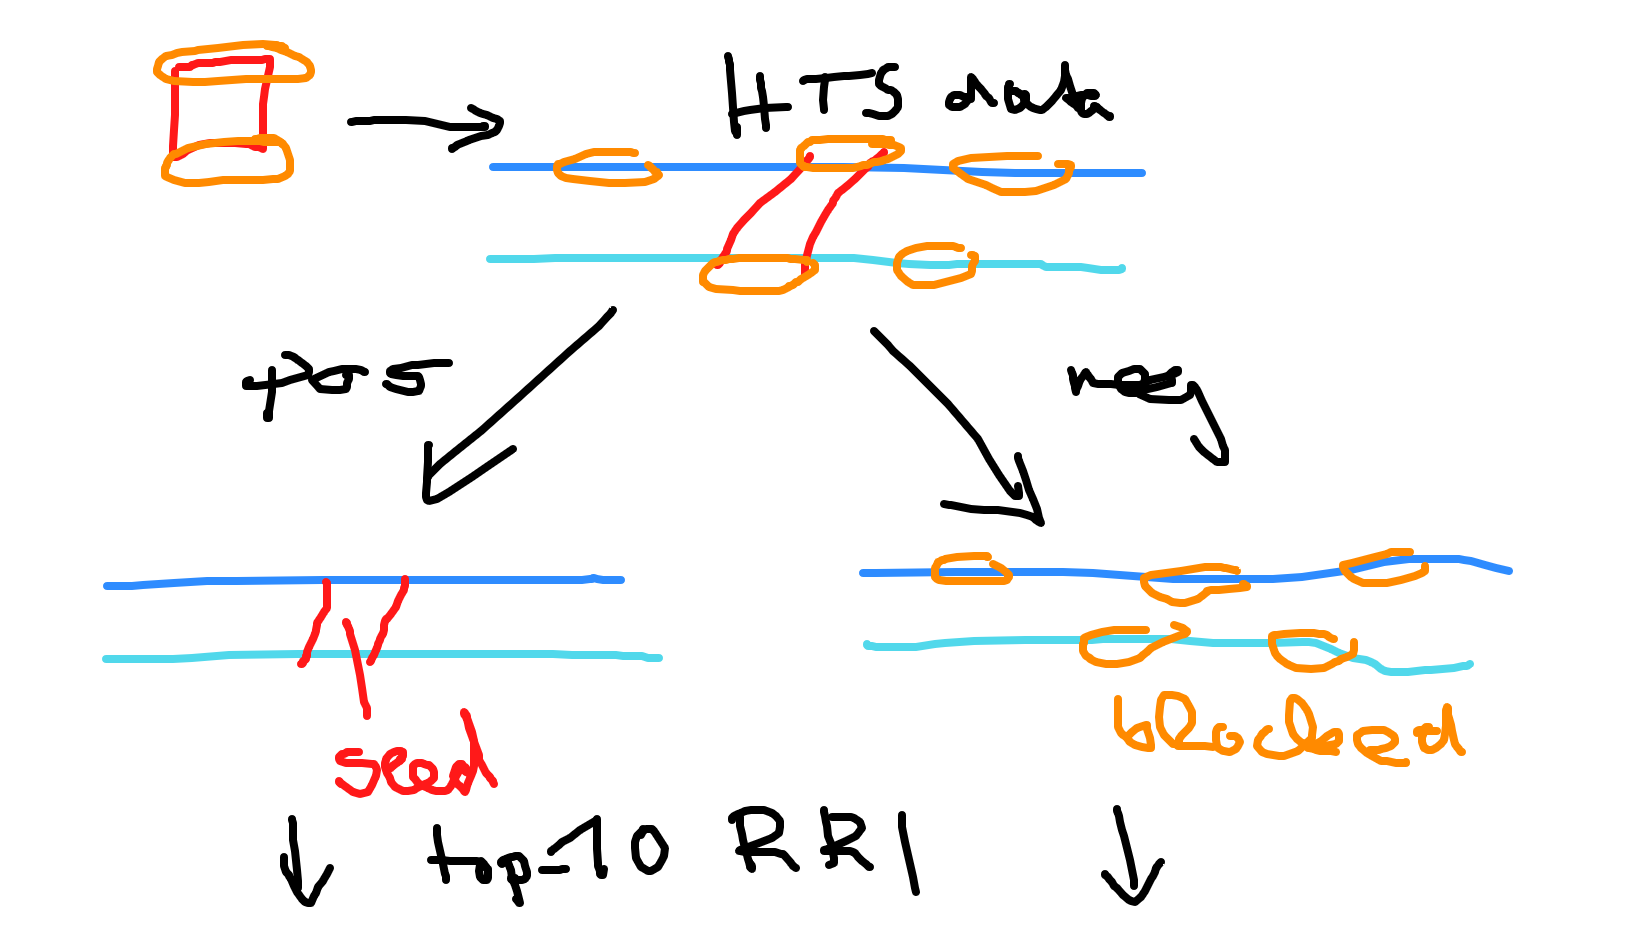 HTS data
pos
neg
seed
blocked
top-10 RRI